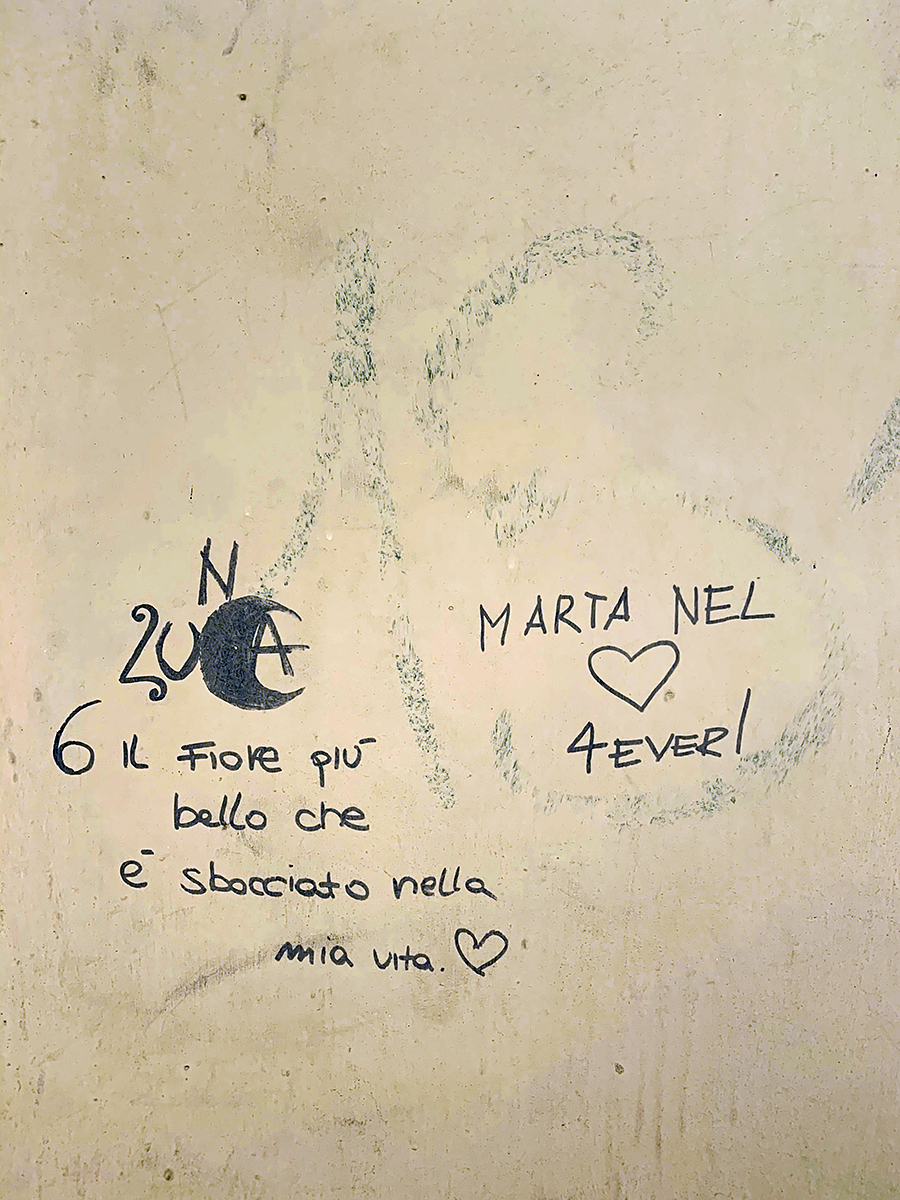 LUNA
6 IL FIORE PIÙ
bello che
è sbocciato nella
mia vita. ♡
MARTA NEL
♡
4EVER!